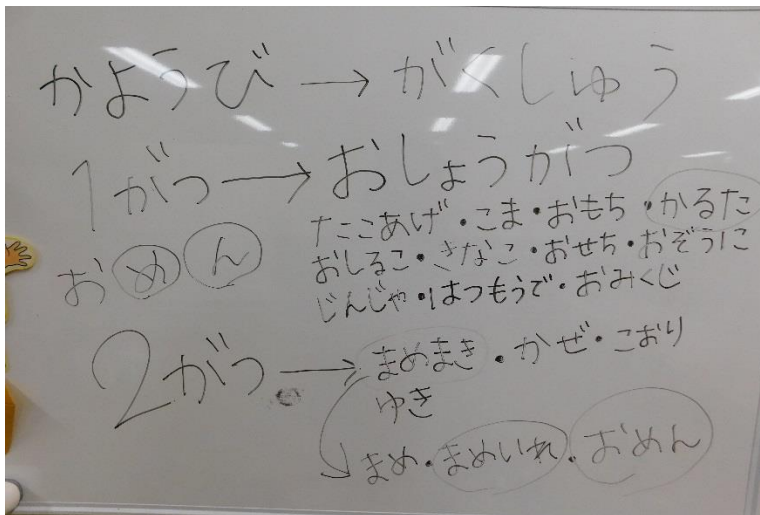 かようび → がくしゅう
1がつ → おしょうがつ
たこあげ・こま・おもち・かるた
おしるこ・きなこ・おせち・おぞうに
じんじゃ・はつもうで・おみくじ
おめん
2がつ → まめまき・かぜ・こおり
ゆき
まめ・まめいれ・おめん